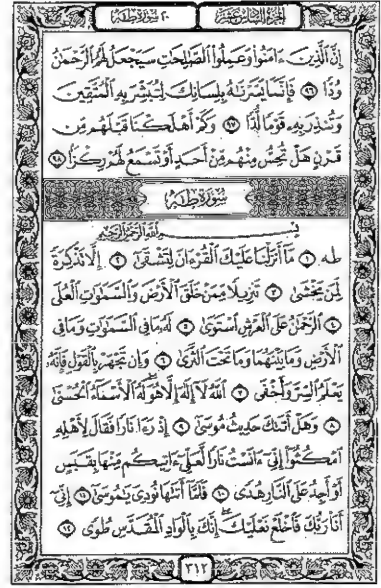 الجزء السادس عشر ٢٠ سورة طه
إِنَّ الَّذِينَ ءَامَنُوا وَعَمِلُوا الصَّالِحَاتِ سَيَجْعَلُ لَهُمُ الرَّحْمَٰنُ
وُدًّا ٩٦ فَإِنَّمَا يَسَّرْنَاهُ بِلِسَانِكَ لِتُبَشِّرَ بِهِ الْمُتَّقِينَ
وَتُنذِرَ بِهِ قَوْمًا لُّدًّا ٩٧ وَكَمْ أَهْلَكْنَا قَبْلَهُم مِّن
قَرْنٍ هَلْ تُحِسُّ مِنْهُم مِّنْ أَحَدٍ أَوْ تَسْمَعُ لَهُمْ رِكْزًا ٩٨
سُورَةُ طٰهٰ
بِسْمِ اللَّهِ الرَّحْمَٰنِ الرَّحِيمِ
طه ١ مَا أَنزَلْنَا عَلَيْكَ الْقُرْءَانَ لِتَشْقَىٰ ٢ إِلَّا تَذْكِرَةً
لِّمَن يَخْشَىٰ ٣ تَنزِيلًا مِّمَّنْ خَلَقَ الْأَرْضَ وَالسَّمَٰوَٰتِ الْعُلَى
٤ الرَّحْمَٰنُ عَلَى الْعَرْشِ اسْتَوَىٰ ٥ لَهُ مَا فِي السَّمَٰوَٰتِ وَمَا فِي
الْأَرْضِ وَمَا بَيْنَهُمَا وَمَا تَحْتَ الثَّرَىٰ ٦ وَإِن تَجْهَرْ بِالْقَوْلِ فَإِنَّهُ
يَعْلَمُ السِّرَّ وَأَخْفَى ٧ اللَّهُ لَا إِلَٰهَ إِلَّا هُوَ لَهُ الْأَسْمَاءُ الْحُسْنَىٰ
٨ وَهَلْ أَتَىٰكَ حَدِيثُ مُوسَىٰ ٩ إِذْ رَءَا نَارًا فَقَالَ لِأَهْلِهِ
امْكُثُوا إِنِّي ءَانَسْتُ نَارًا لَّعَلِّي ءَاتِيكُم مِّنْهَا بِقَبَسٍ
أَوْ أَجِدُ عَلَى النَّارِ هُدًى ١٠ فَلَمَّا أَتَىٰهَا نُودِيَ يَٰمُوسَىٰ ١١ إِنِّي
أَنَا رَبُّكَ فَاخْلَعْ نَعْلَيْكَ إِنَّكَ بِالْوَادِ الْمُقَدَّسِ طُوًى ١٢
٣١٢